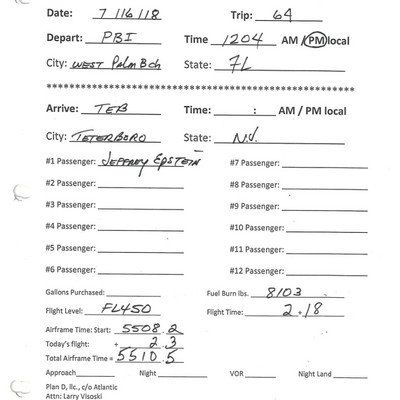 Date: 7/16/18 Trip: 64
Depart: PBI Time 1204 AM / PM local
City: WEST PALM BCH State: FL
****************************************************
Arrive: TEB Time: : AM / PM local
City: TETERBORO State: N.J.
#1 Passenger: JEFFREY EPSTEIN #7 Passenger:
#2 Passenger: #8 Passenger:
#3 Passenger: #9 Passenger:
#4 Passenger: #10 Passenger:
#5 Passenger: #11 Passenger:
#6 Passenger: #12 Passenger:
Gallons Purchased: Fuel Burn lbs. 8103
Flight Level: FL450 Flight Time: 2+18
Airframe Time: Start: 5508.2
Today's flight: + 2.3
Total Airframe Time = 5510.5
Approach Night VOR Night Land
Plan D, llc., c/o Atlantic
Attn: Larry Visoski